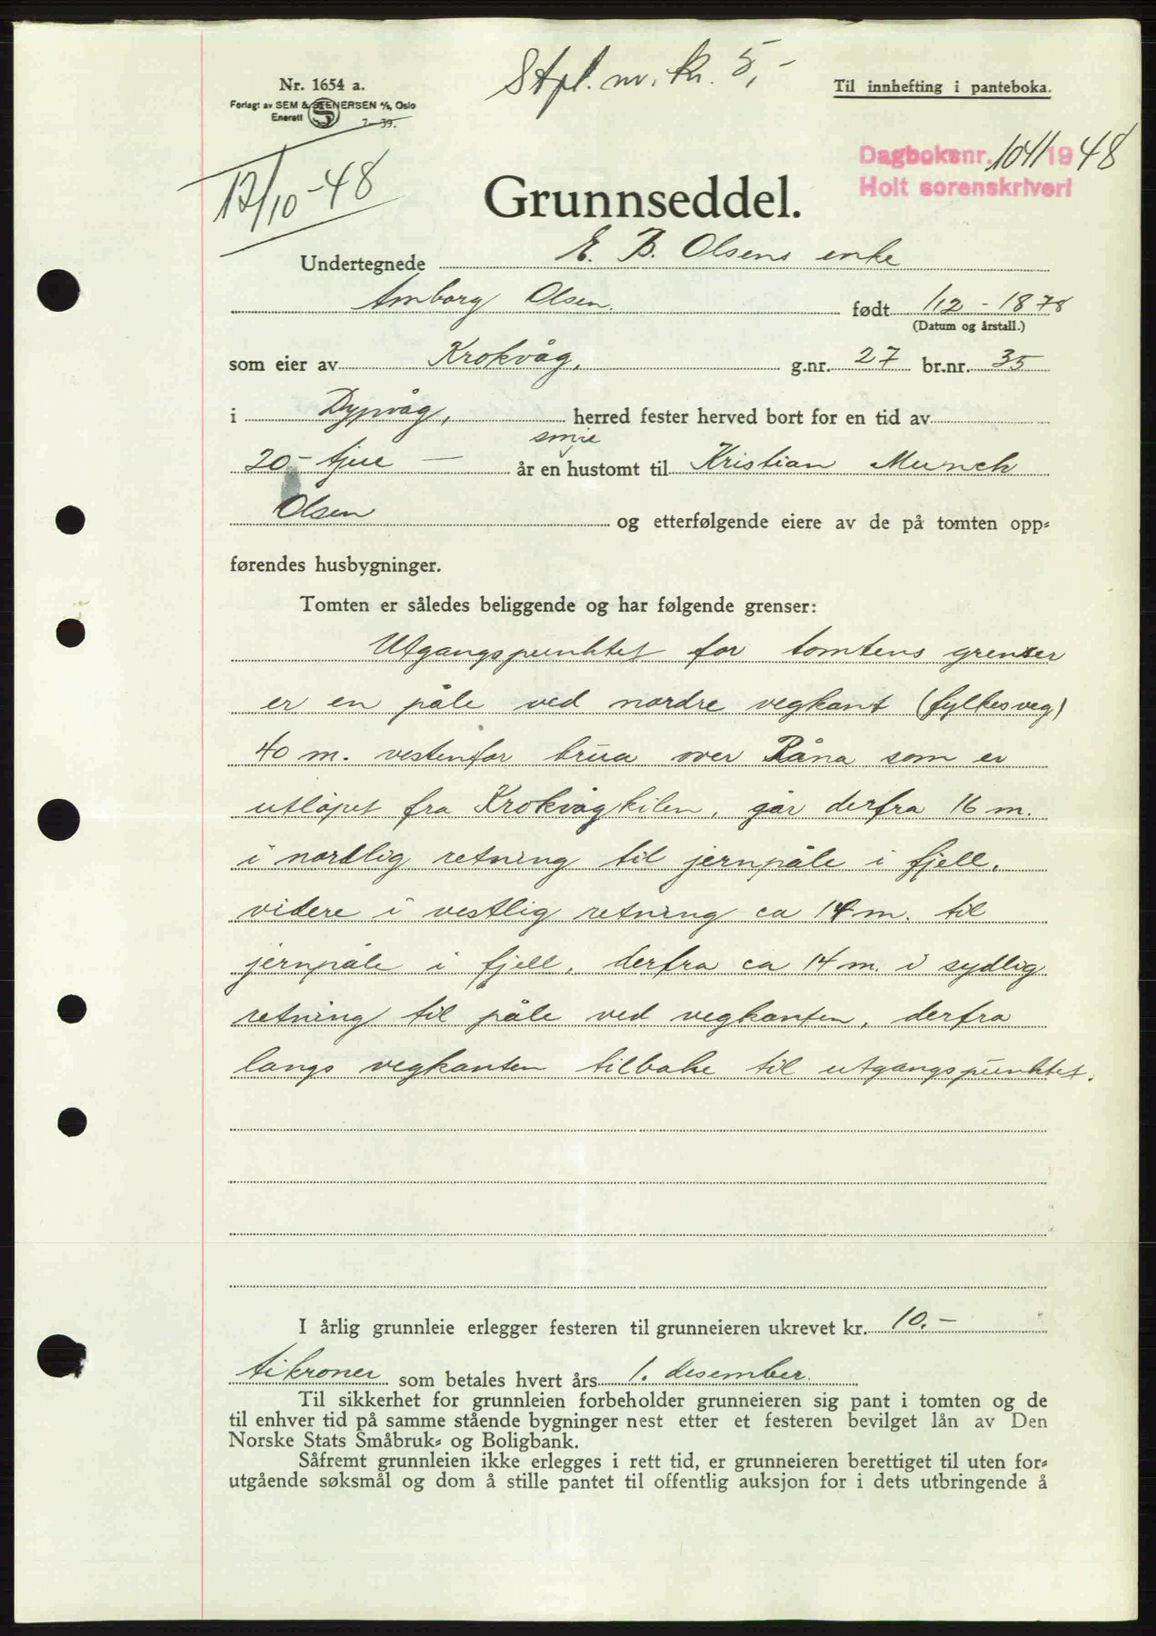 Stpl. m. kr. 5,-
Nr. 1654 a.
Forlagt av SEM & STENERSEN A/S, Oslo
Enerett 7-39.
Til innhefting i panteboka.
Dagboksnr. 1041 1948
Holt sorenskriveri
12/10-48
Grunnseddel.
Undertegnede E. B. Olsens enke
Amborg Olsen. født 1/12 - 1878
(Datum og årstall.)
som eier av Krokvåg, g.nr. 27 br.nr. 35
i Dypvåg, herred fester herved bort for en tid av
20 - tjue - år en hustomt til Kristian Munch
Olsen og etterfølgende eiere av de på tomten opp=
førendes husbygninger.
Tomten er således beliggende og har følgende grenser:
Utgangspunktet for tomtens grenser
er en påle ved nordre vegkant (fylkesveg)
40 m. vestenfor brua over Råna som er
utløpet fra Krokvågkilen, går derfra 16 m.
i nordlig retning til jernpåle i fjell,
videre i vestlig retning ca 14 m. til
jernpåle i fjell, derfra ca 14 m. i sydlig
retning til påle ved vegkanten, derfra
langs vegkanten tilbake til utgangspunktet.
I årlig grunnleie erlegger festeren til grunneieren ukrevet kr. 10.-
tikroner som betales hvert års 1. desember.
Til sikkerhet for grunnleien forbeholder grunneieren sig pant i tomten og de
til enhver tid på samme stående bygninger nest etter et festeren bevilget lån av Den
Norske Stats Småbruk= og Boligbank.
Såfremt grunnleien ikke erlegges i rett tid, er grunneieren berettiget til uten for=
utgående søksmål og dom å stille pantet til offentlig auksjon for i dets utbringende å